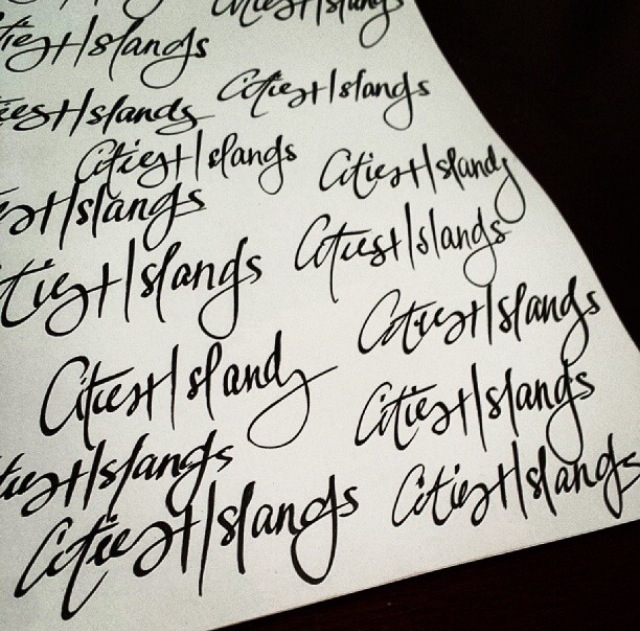 Cities+Islands
Cities+Islands
Cities+Islands
Cities+Islands
Cities+Islands
Cities+Islands
Cities+Islands
Cities+Islands
Cities+Islands
Cities+Islands
Cities+Islands
Cities+Islands
Cities+Islands
Cities+Islands